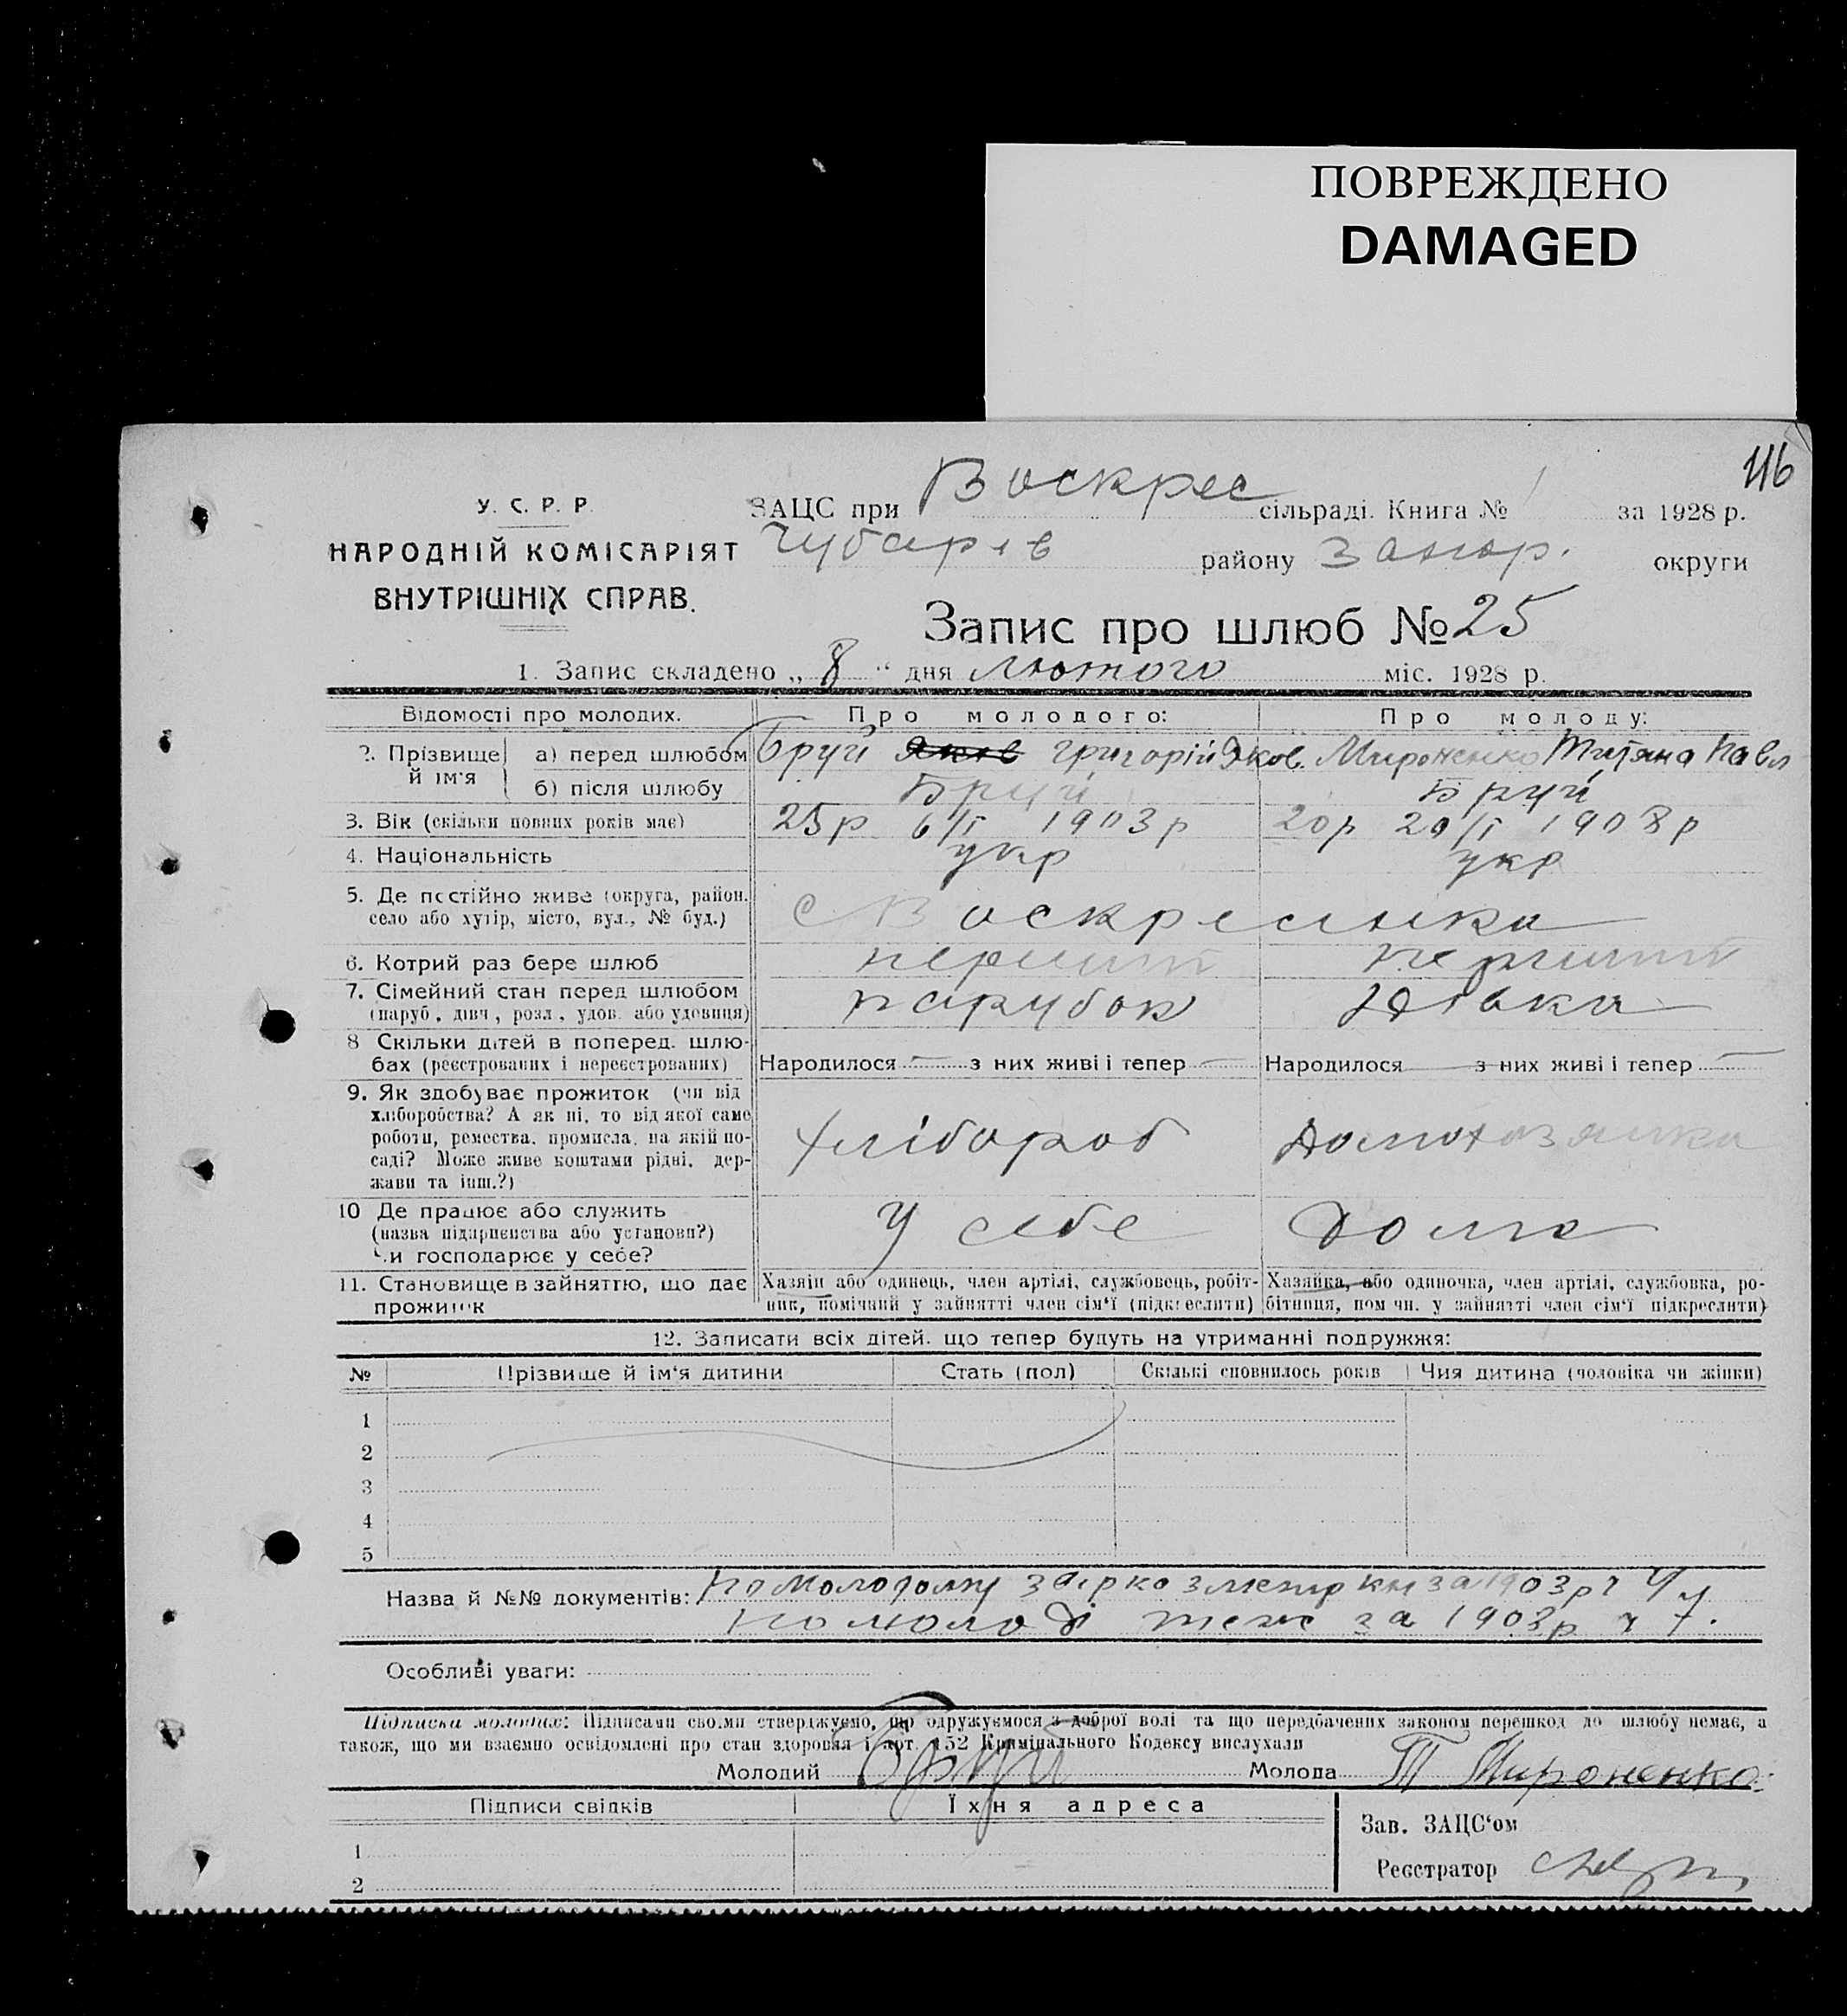 ПОВРЕЖДЕНО
DAMAGED
116
У. С. Р. Р.
НАРОДНІЙ КОМІСАРІЯТ
ВНУТРІШНІХ СПРАВ.
ЗАЦС при Воскрес сільраді. Книга № за 1928 р.
Чубарів району Запор. округи
Запис про шлюб № 25
1. Запис складено „ 8 “ дня лютого міс. 1928 р.
Відомості про молодих. Про молодого: Про молоду:
2. Прізвище й ім'я а) перед шлюбом Бруй Григорій Яков. Мироненко Титяна Павл
б) після шлюбу Бруй Бруй
3. Вік (скільки повних років має) 25 р 6/І 1903 р 20 р 20/І 1908 р
4. Національність укр укр
5. Де постійно живе (округа, район,
село або хутір, місто, вул., № буд.) с Воскресенка
6. Котрий раз бере шлюб перший перший
7. Сімейний стан перед шлюбом
(паруб., дівч., розл., удов. або удовиця) парубок дівка
8 Скільки дітей в поперед. шлю-
бах (реєстрованих і нереєстрованих) Народилося — з них живі і тепер — Народилося — з них живі і тепер —
9. Як здобуває прожиток (чи від
хліборобства? А як ні, то від якої саме
роботи, ремества, промисла, на якій по-
саді? Може живе коштами рідні, дер-
жави та інш.?) хлібороб домохазяйка
10 Де працює або служить
(назва підприємства або установи?)
Чи господарює у себе? У себе Дома
11. Становище в зайняттю, що дає
прожиток
Хазяїн або одинець, член артілі, службовець, робіт-
ник, помічний у зайнятті член сім'ї (підкреслити)
Хазяйка, або одиночка, член артілі, службовка, ро-
бітниця, пом чн. у зайнятті член сім'ї підкреслити)
12. Записати всіх дітей, що тепер будуть на утриманні подружжя:
№ Прізвище й ім'я дитини Стать (пол) Скількі сповнилось років Чия дитина (чоловіка чи жінки)
1
2
3
4
5
Назва й №№ документів: по молодому за 1903 р ч
по молоді теж за 1908 р ч 7.
Особливі уваги:
Підписка молодих: Підписами своїми стверджуємо, що одружуємося з доброї волі та що передбачених законом перешкод до шлюбу немає, а
також, що ми взаємно освідомлені про стан здоровля і арт. 152 Кримінального Кодексу вислухали
Молодий Бруй Молода Т Мироненко
Підписи свідків Їхня адреса
Зав. ЗАЦС'ом
1
Реєстратор
2